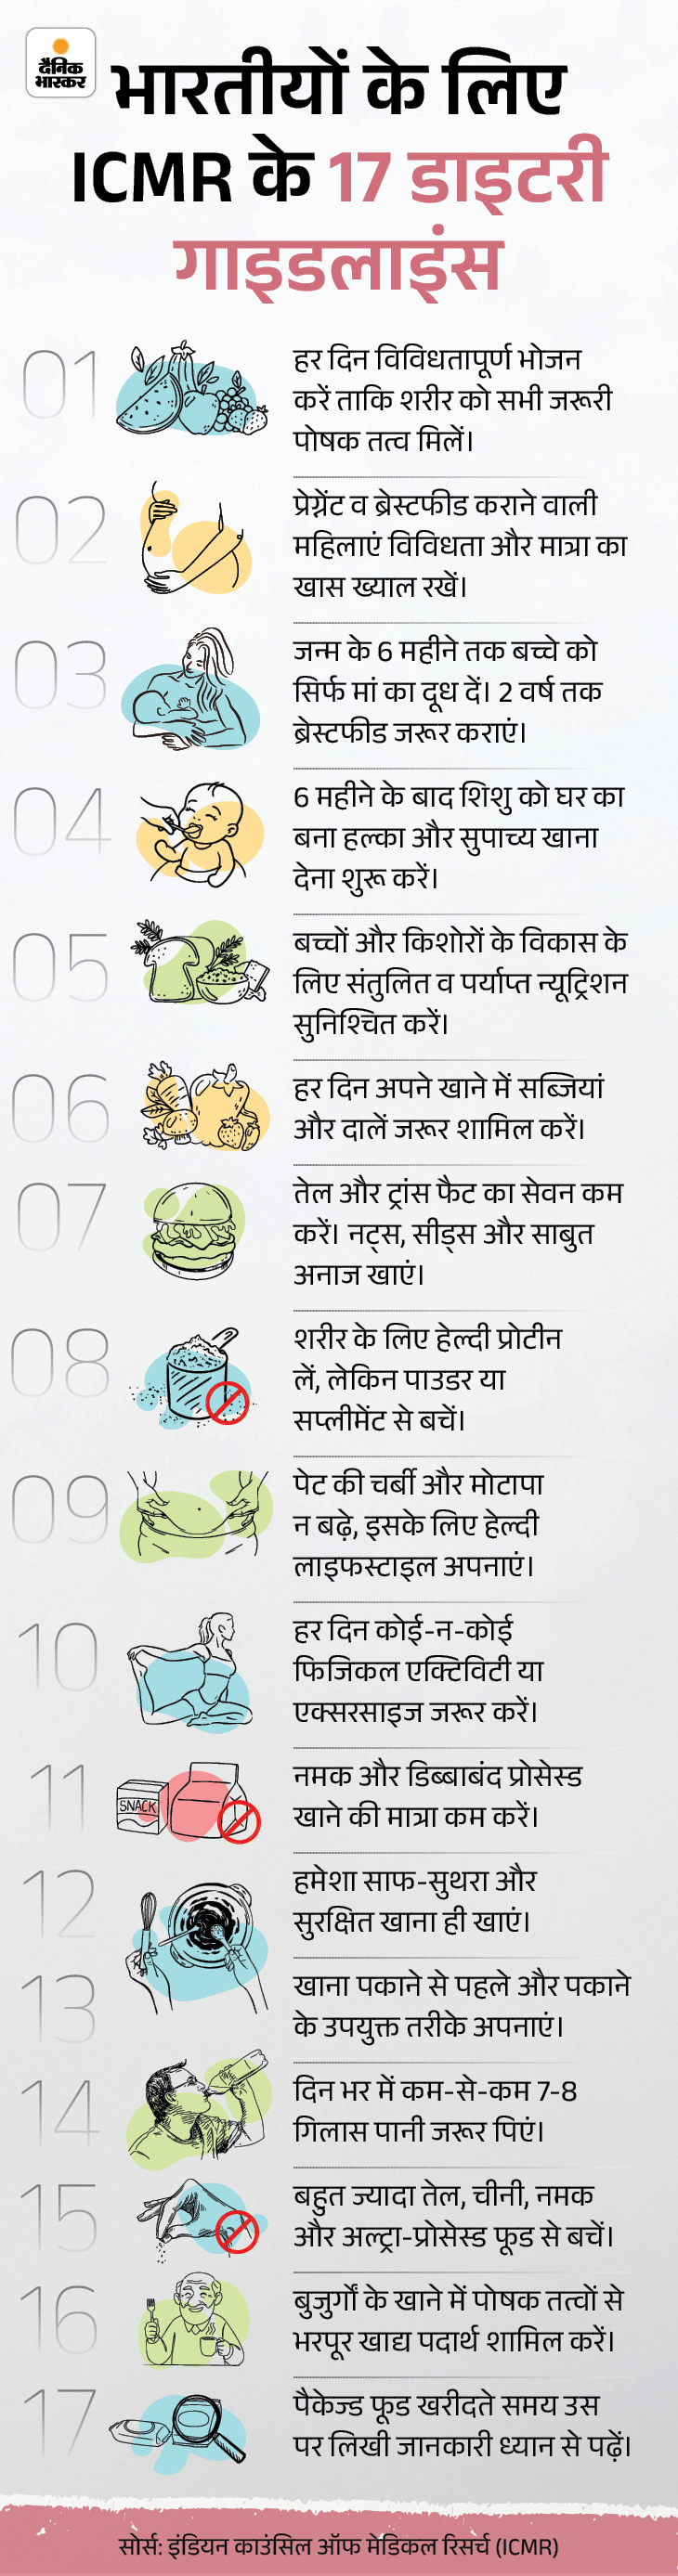 दैनिक
भास्कर
भारतीयों के लिए
ICMR के 17 डाइटरी
गाइडलाइंस
01
हर दिन विविधतापूर्ण भोजन
करें ताकि शरीर को सभी जरूरी
पोषक तत्व मिलें।
02
प्रेग्नेंट व ब्रेस्टफीड कराने वाली
महिलाएं विविधता और मात्रा का
खास ख्याल रखें।
03
जन्म के 6 महीने तक बच्चे को
सिर्फ मां का दूध दें। 2 वर्ष तक
ब्रेस्टफीड जरूर कराएं।
04
6 महीने के बाद शिशु को घर का
बना हल्का और सुपाच्य खाना
देना शुरू करें।
05
बच्चों और किशोरों के विकास के
लिए संतुलित व पर्याप्त न्यूट्रिशन
सुनिश्चित करें।
06
हर दिन अपने खाने में सब्जियां
और दालें जरूर शामिल करें।
07
तेल और ट्रांस फैट का सेवन कम
करें। नट्स, सीड्स और साबुत
अनाज खाएं।
08
शरीर के लिए हेल्दी प्रोटीन
लें, लेकिन पाउडर या
सप्लीमेंट से बचें।
09
पेट की चर्बी और मोटापा
न बढ़े, इसके लिए हेल्दी
लाइफस्टाइल अपनाएं।
10
हर दिन कोई-न-कोई
फिजिकल एक्टिविटी या
एक्सरसाइज जरूर करें।
11
SNACK
नमक और डिब्बाबंद प्रोसेस्ड
खाने की मात्रा कम करें।
12
हमेशा साफ-सुथरा और
सुरक्षित खाना ही खाएं।
13
खाना पकाने से पहले और पकाने
के उपयुक्त तरीके अपनाएं।
14
दिन भर में कम-से-कम 7-8
गिलास पानी जरूर पिएं।
15
बहुत ज्यादा तेल, चीनी, नमक
और अल्ट्रा-प्रोसेस्ड फूड से बचें।
16
बुजुर्गों के खाने में पोषक तत्वों से
भरपूर खाद्य पदार्थ शामिल करें।
17
पैकेज्ड फूड खरीदते समय उस
पर लिखी जानकारी ध्यान से पढ़ें।
सोर्स: इंडियन काउंसिल ऑफ मेडिकल रिसर्च (ICMR)